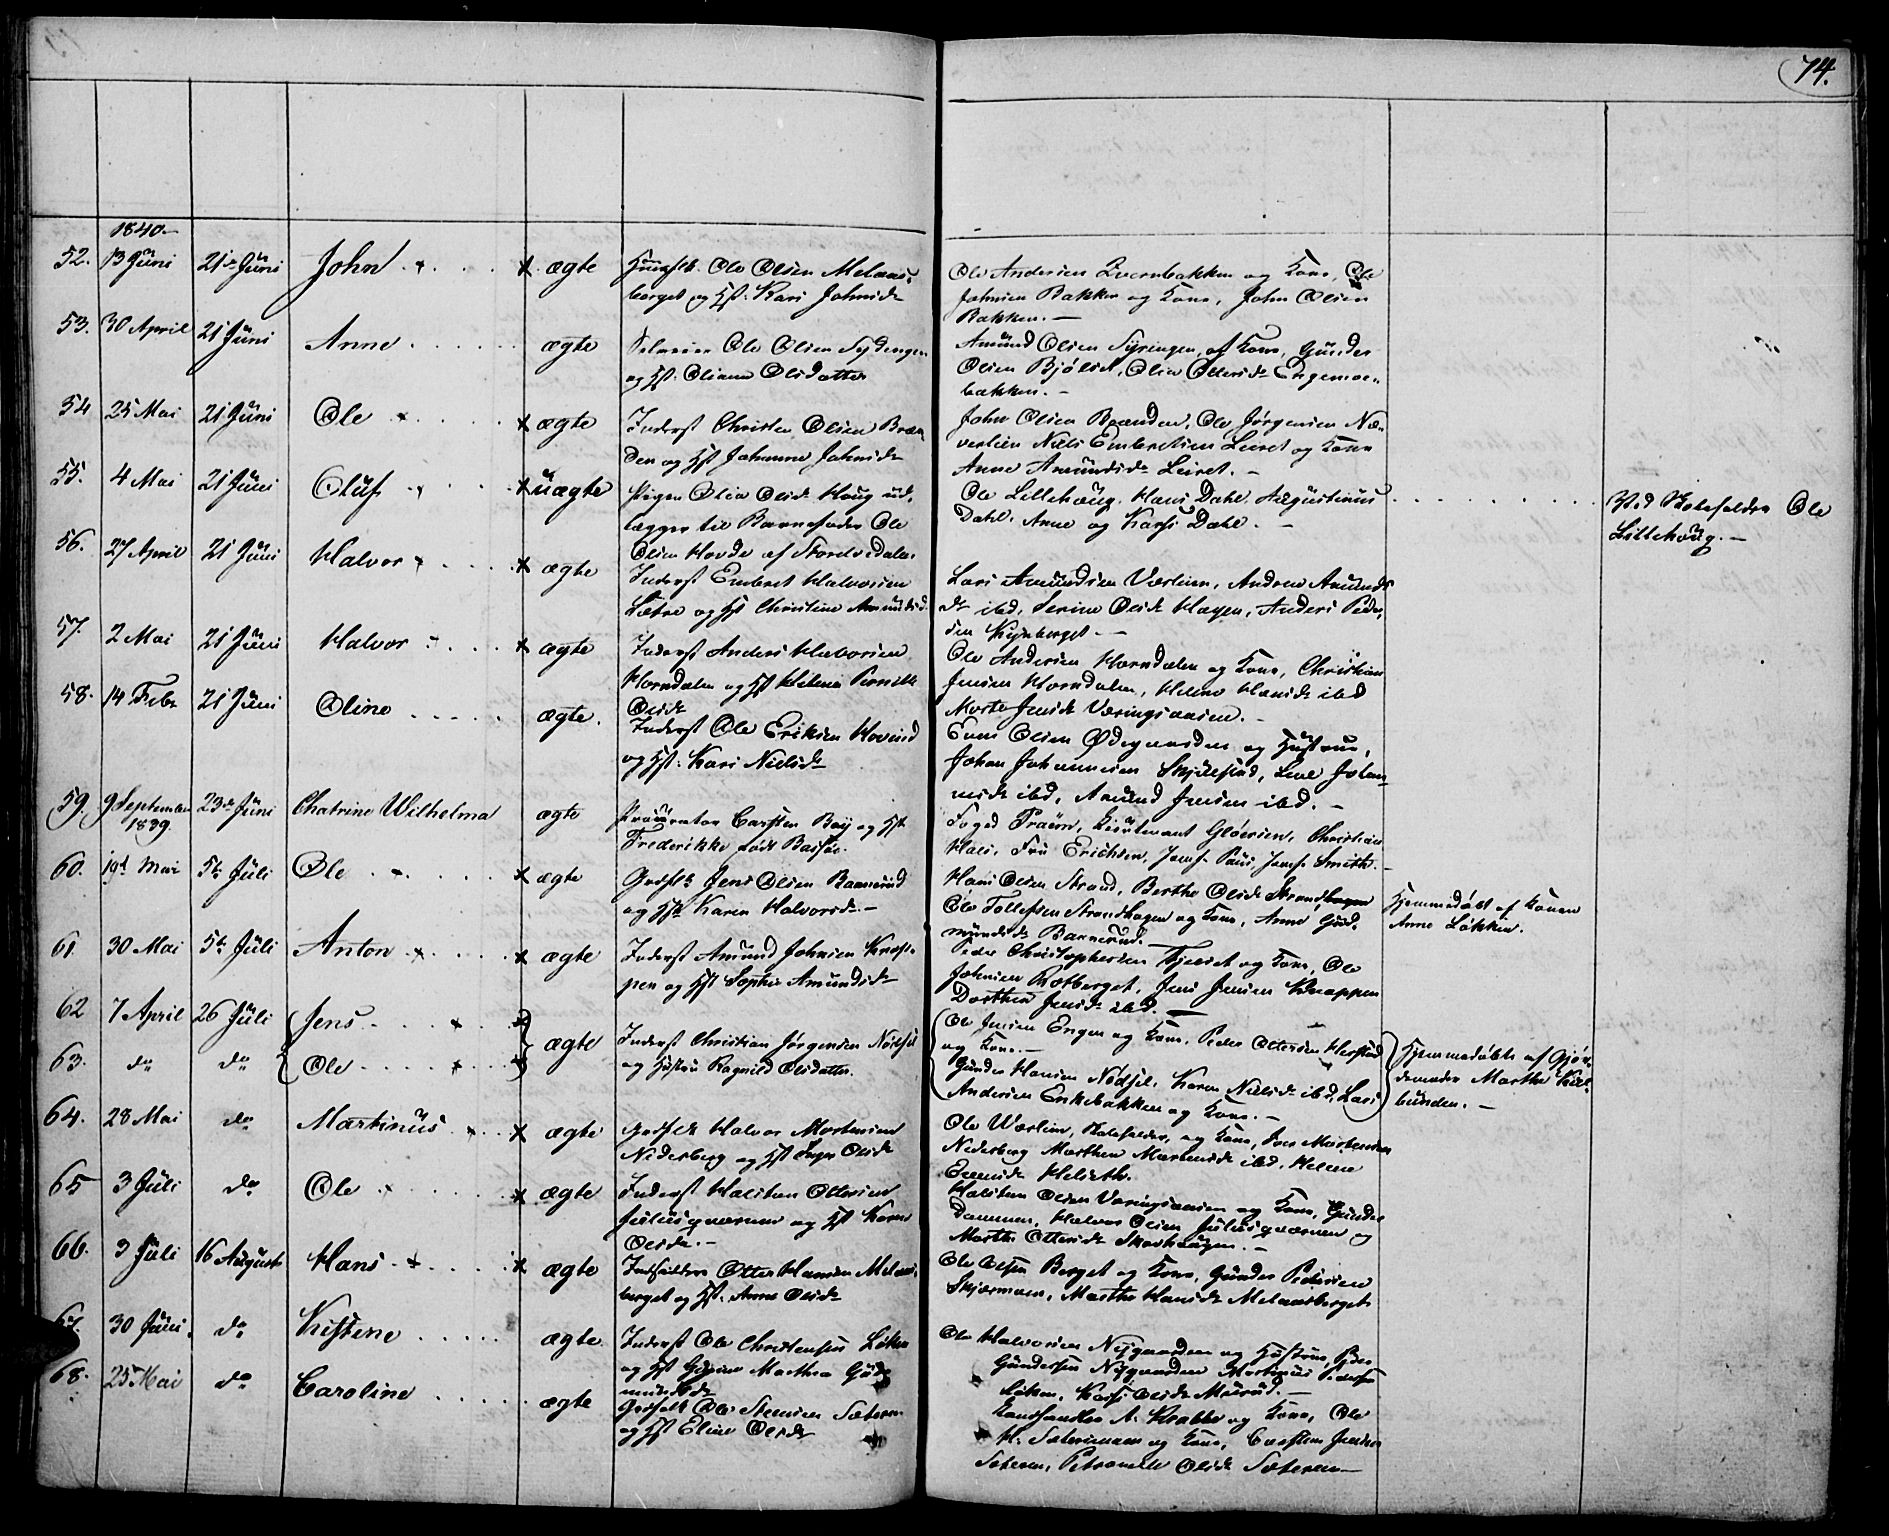 74.
1840.
52. 13 Juni 21de Juni John ægte Ole Olsen Melaas-
berget og Hst. Kari Johnsdr
Ole Andersen Kvernbakken og Kone, Ole
Johnsen Bakken og Kone, John Olsen
Bakken.
53. 30 April 21 Juni Anne ægte Ole Olsen
og Hst. Oliane Olsdatter
Amund Olsen af Kone, Gunder
Olsen Bjølset, Olia Ottersdr Engemoe-
bakken.
54 25 Mai 21 Juni Ole ægte Inderst Christen Olsen Bræn
den og Hst Johanne Johnsdr
John Olsen Brænden, Ole Jørgensen Næ-
verlien Niels Embretsen Leiret og Kone
Anne Amundsdr Leiret.
55. 4 Mai 21 Juni Oluf uægte Pigen Olia Olsdr Haug ud-
lægger til Barnefader Ole
Olsen Hovde af Storelvedalen
Ole Lillehaug, Hans Dahl, Augustinus
Dahl, Anne og Karsi Dahl.
Ved Ole
Lillehaug.
56. 27 April 21 Juni Halvor ægte Inderst Embret Halvorsen
Sætre og Hst Christine Amundsd.
Lars Amundsen Væslien, Andrea Amunds
dr ibd, Serine Olsdr Hagen, Anders Peder-
sen Kynberget.
57. 2 Mai 21 Juni Halvor ægte Inderst Anders Halvorsen
Horndalen og Hst Helene Pernille
Olsdr
Ole Andersen Horndalen og Kone, Christian
Jensen Horndalen, Helene Hansdr ibd
Marte Jensdr Væringsaasen.
58. 14 Febr 21 Juni Oline ægte. Inderst Ole Eriksen Hovind
og Hst. Kari Nielsdr
Even Olsen Ødegaarden og Hustrue,
Johan Johannesen Skjellstad, Lene Johan-
nesdr ibd, Amund Jensen ibd.
59. 9 September 1839. 23de Juni Chatrine Wilhelma ægte Procurator Carsten Boij og Hst
Frederikke født Bassøe.
Foged Traun, Lieutenant Gløersen, Christian
Hals, Fru Erichsen, Jomf. Paus, Jomf. Smith.
60. 19d Mai 5te Juli Ole ægte Jens Olsen Bannerud
og Hst Karen Halvorsdr
Hans Olsen Strand, Berthe Olsdr Strandhagen
Ole Tollefsen Strandhagen og Kone, Anne Gud-
mundsdr Bannerud.
Hjemmedøbt af Konen
Anne Løkken.
61. 30 Mai 5te Juli Anton ægte Inderst Amund Johnsen Knap-
pen og Hst Sophie Amundsdr
Peder Christophersen Fjellet og Kone, Ole
Johnsen Rotberget, Jens Jensen Knappen
Dorthea Jensdr ibd.
62 7 April 26 Juli Jens
63. do do Ole ægte Inderst Christian Jørgensen Nødsel
og Hustru Ragnild Olsdatter.
Ole Jensen Engen og Kone, Peder Ottersen Herstad
og Kone.
Gunder Hansen Nødsel, Karen Nielsdr ibd, Lars
Andersen Enkebakken og Kone.
Hjemmedøbte af Gjor-
demoder Marthe Kul-
bunden.
64. 28 Mai do Martinus ægte Halvor Mortensen
Nedersberg og Hst Inger Olsdr
Ole Wæslien, og Kone, Iver Mortensen
Nedersberg Marthea Mortensdr ibd. Helene
Evensdr Helseth.
65 3 Juli do Ole ægte Inderst Halsten Ottersen
Juliusqværnen og Hst Karen
Olsdr.
Halsten Olsen Væringsaasen og Kone, Gunder
Dammen, Halvor Olsen Juliusqværnen og
Marthe Ottersdr Skarhaugen.
66. 3 Juli 16 August Hans ægte Otter Hansen Melaas-
berget og Hst. Anne Olsdr
Ole Olsen Berget og Kone, Gunder Pedersen
Skjærmoen, Marthe Hansdr Melaasberget
67. 30 Juni do Kistine ægte. Inderst Ole Christensen Løken
og Hst Martha Gud-
mundsdr
Ole Halvorsen Nygaarden og Hustrue, Peder
Gundersen Nygaarden Martinus Pedersen
Løken, Karsi Olsdr Maurud.
68. 25 Mai do Caroline ægte Ole Stensen Sæteren
og Hst Eline Olsdr
Landhandler A. Krabbe og Kone, Ole
H. Sætersmoen og Kone, Carsten Jensen
Sæteren, Petronelle Olsdr Sæteren